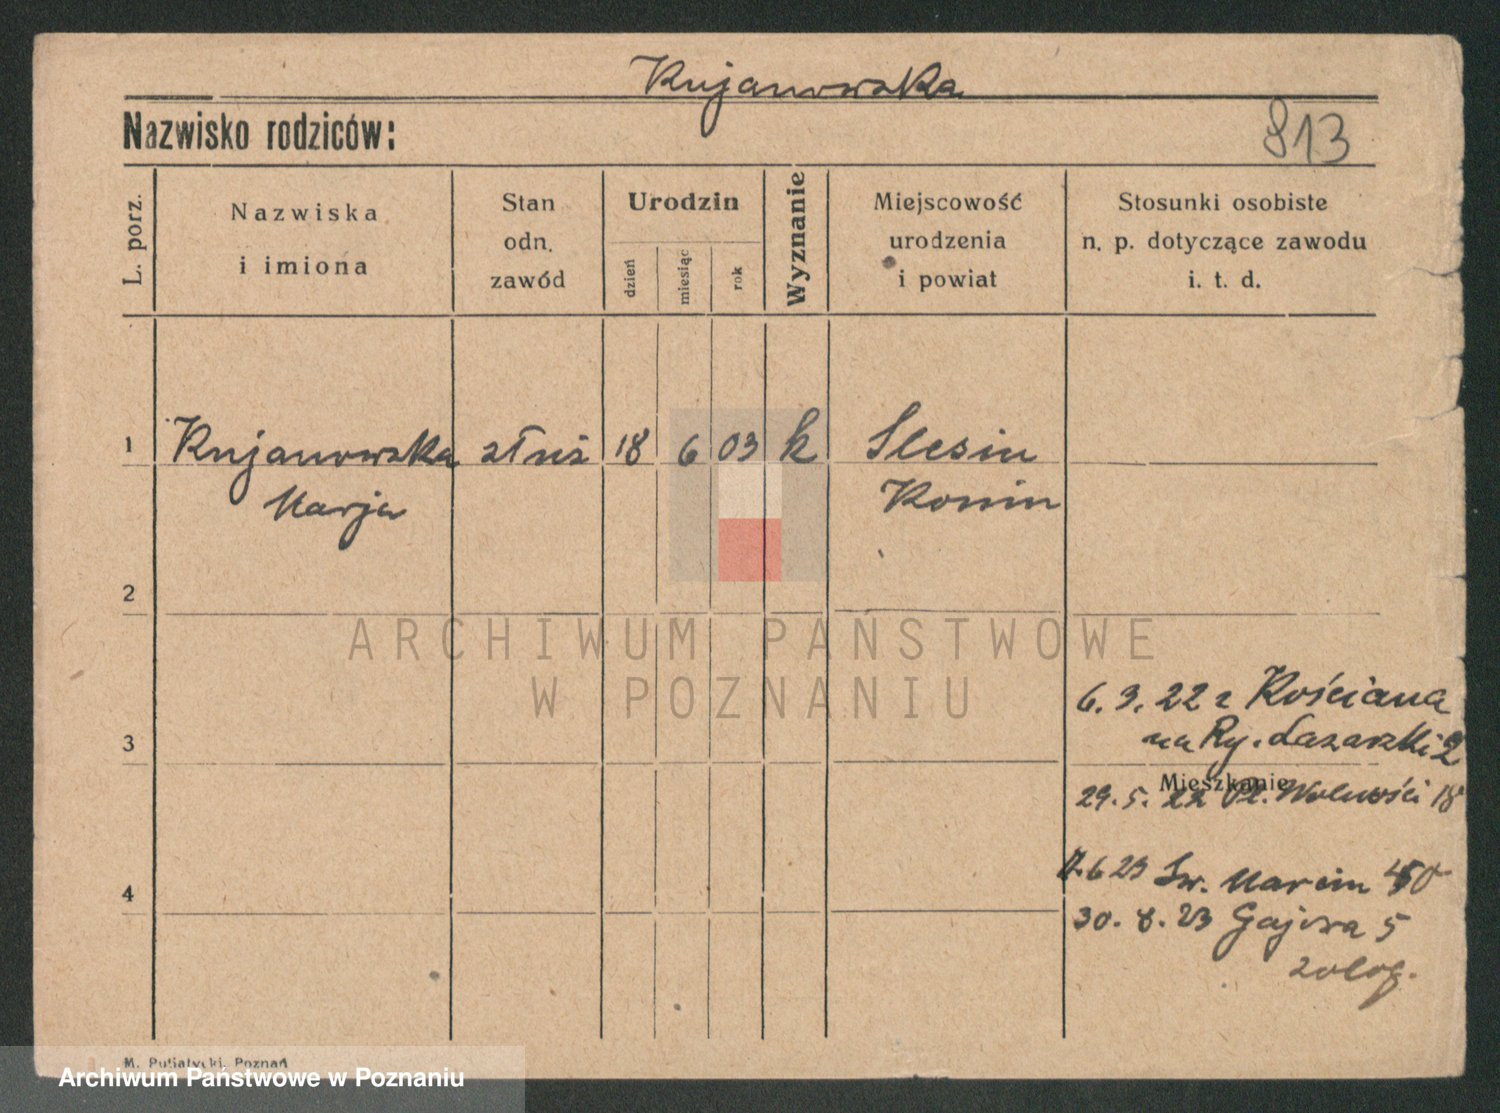 Kujanowska
Nazwisko rodziców:
813
L. porz.
Nazwiska
i imiona
Stan
odn.
zawód
Urodzin
dzień
miesiąc
rok
Wyznanie
Miejscowość
urodzenia
i powiat
Stosunki osobiste
n. p. dotyczące zawodu
i. t. d.
1
Kujanowska służ 18 6 03 k Slesin
Marja Konin
2
ARCHIWUM PAŃSTWOWE
W POZNANIU
6. 3. 22 z Kościana
3
na Ry. Łazarski 2
Mieszkanie
29. 5. 22 Pl. Wolności 18
6 23 Św. Marcin
4
30. 8. 23 Gajowa 5
zolog.
M. Putiatycki, Poznań
Archiwum Państwowe w Poznaniu